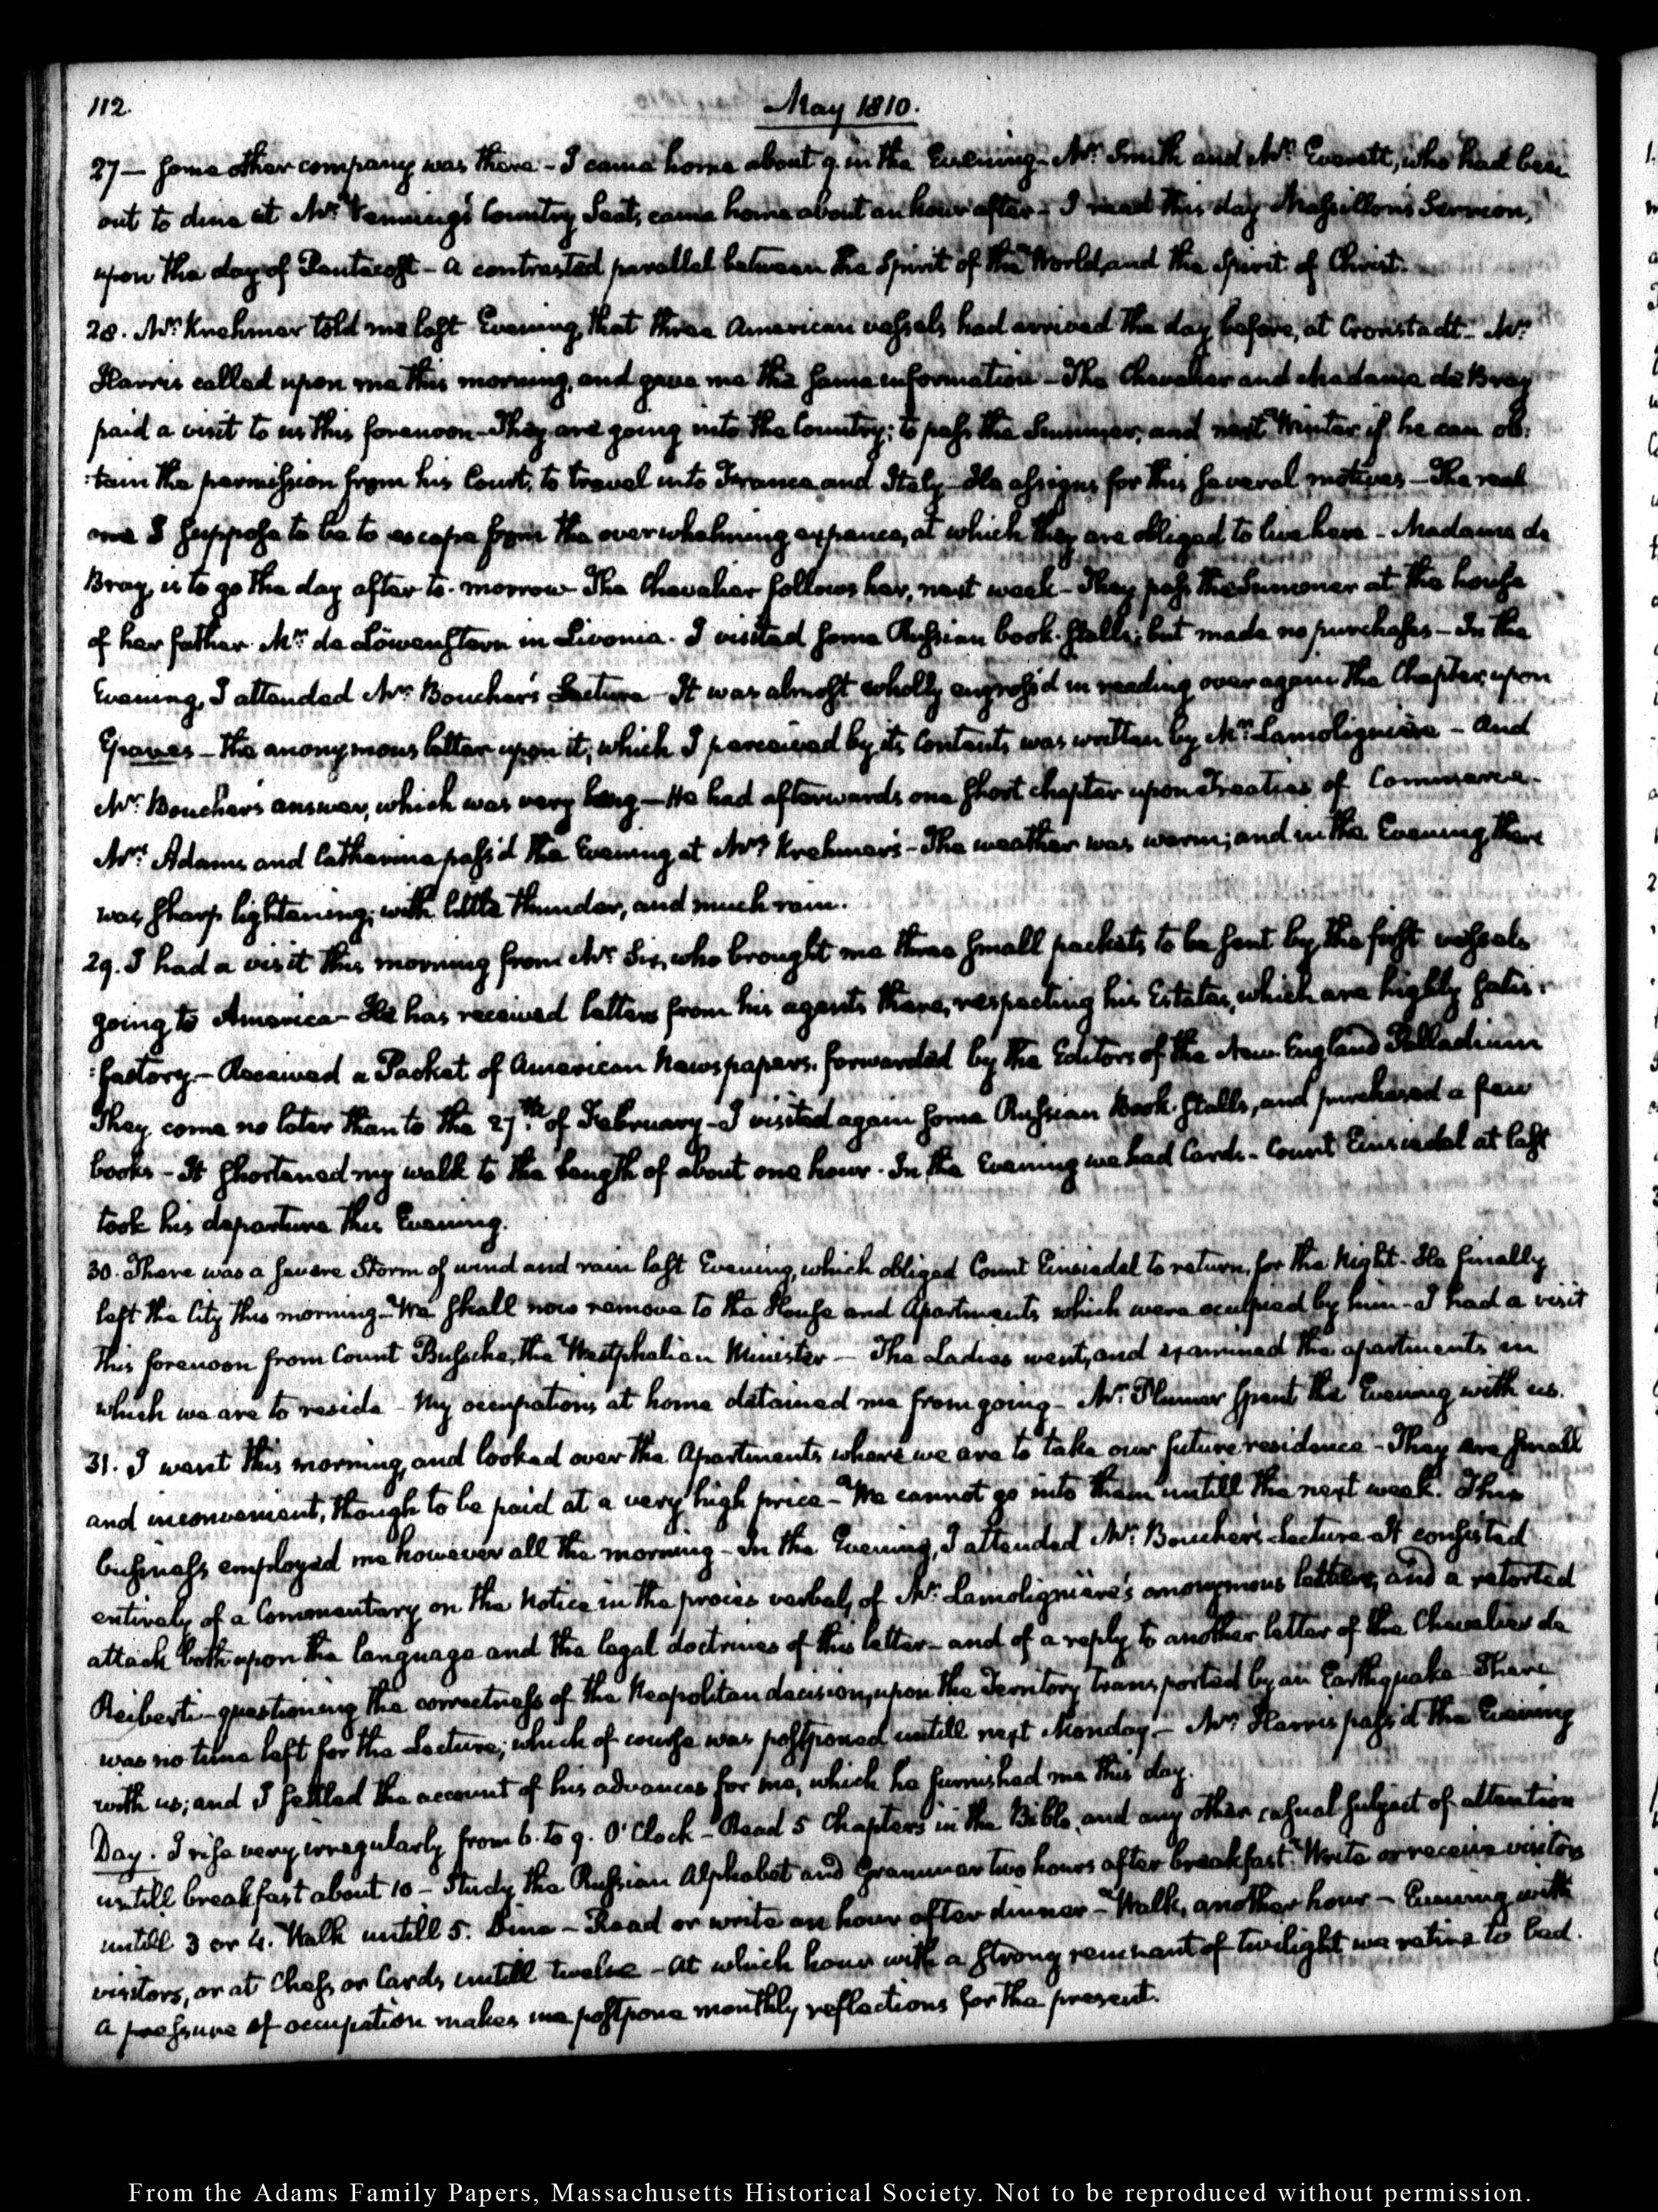 112.
May 1810.
27 – Some other company was there – I came home about 9. in the Evening – Mr: Smith and Mr: Everett, who had been
out to dine at Mr: Venning's Country Seat, came home about an hour after – I read this day Massillon's Sermon,
upon the day of Pentecost – a contrasted parallel between the Spirit of the World, and the Spirit of Christ.
28. Mr: Krehmer told me last Evening, that three American vessels had arrived the day before, at Cronstadt – Mr:
Harris called upon me this morning, and gave me the same information – The Chevalier and Madame de Bray
paid a visit to us this forenoon – They are going into the Country; to pass the Summer, and next Winter if he can ob:
:tain the permission from his Court, to travel into France, and Italy – He assigns for this several motives – The real
one I suppose to be to escape from the overwhelming expence, at which they are obliged to live here – Madame de
Bray, is to go the day after to-morrow – The Chevalier follows her, next week – They pass the Summer at the house
of her father Mr: de Löwenstern in Livonia. I visited some Russian book-stalls; but made no purchases – In the
Evening, I attended Mr: Boucher's Lecture – It was almost wholly engross'd in reading over again the Chapter, upon
Graves – the anonymous letter upon it, which I perceived by its Contents was written by Mr: Lamolignière – And
Mr: Boucher's answer, which was very long – He had afterwards one short chapter upon Treaties of Commerce.
Mrs: Adams and Catherine pass'd the Evening at Mrs: Krehmer's – The weather was warm; and in the Evening there
was sharp lightening; with little thunder, and much rain.
29. I had a visit this morning from Mr: Six, who brought me three small packets to be sent by the first vessels
going to America – He has received letters from his agents there, respecting his Estates, which are highly satis:
:factory. – Received a Packet of American Newspapers. forwarded by the Editors of the New-England Palladium
They come no later than to the 27th: of February – I visited again some Russian Book-stalls, and purchased a few
books – It shortened my walk to the length of about one hour. In the Evening we had Cards – Count Einsiedel at last
took his departure this Evening.
30. There was a severe Storm of wind and rain last Evening, which obliged Count Einsiedel to return, for the Night – He finally
left the City this morning – We shall now remove to the House and Apartments which were occupied by him – I had a visit
this forenoon from Count Bussche, the Westphalian Minister – The Ladies went, and examined the apartments in
which we are to reside – My occupations at home detained me from going – Mr: Plumer spent the Evening with us.
31. I went this morning, and looked over the Apartments where we are to take our future residence – They are small
and inconvenient, though to be paid at a very high price – We cannot go into them untill the next week. This
business employed me however all the morning – In the Evening, I attended Mr: Boucher's Lecture – It consisted
entirely of a Commentary on the Notice in the procès verbal, of Mr: Lamolignière's anonymous letter, and a retorted
attack both upon the language and the legal doctrines of this letter – and of a reply to another letter of the Chevalier de
Reiberti – questioning the correctness of the Neapolitan decision, upon the Territory transported by an Earthquake – There
was no time left for the Lecture; which of course was postponed untill next Monday – Mr: Harris pass'd the Evening
with us; and I settled the account of his advances for me, which he furnished me this day.
Day. I rise very irregularly from 6. to 9. O'Clock – Read 5 Chapters in the Bible, and any other casual subject of attention
untill breakfast about 10 – Study the Russian Alphabet and Grammar two hours after breakfast. Write or receive visitors
untill 3 or 4. Walk untill 5. Dine – Read or write an hour after dinner – Walk, another hour – Evening with
visitors, or at Chess or Cards untill twelve – At which hour with a strong remnant of twilight we retire to bed.
A pressure of occupation makes me postpone monthly reflections for the present.
From the Adams Family Papers, Massachusetts Historical Society. Not to be reproduced without permission.